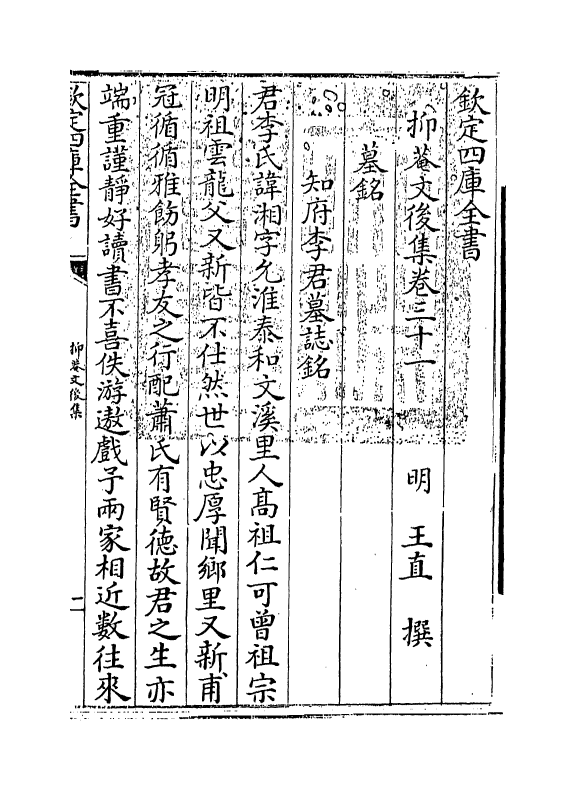 欽定四庫全書
抑菴文後集卷三十一
明 王直 撰
墓銘
知府李君墓誌銘
君李氏諱湘字允淮泰和文溪里人髙祖仁可曾祖宗
明祖雲龍父又新皆不仕然世以忠厚聞鄉里又新甫
冠循循雅飭躬孝友之行配蕭氏有賢徳故君之生亦
端重謹静好讀書不喜佚游遨戲予兩家相近數往來
欽定四庫全書
抑菴文後集